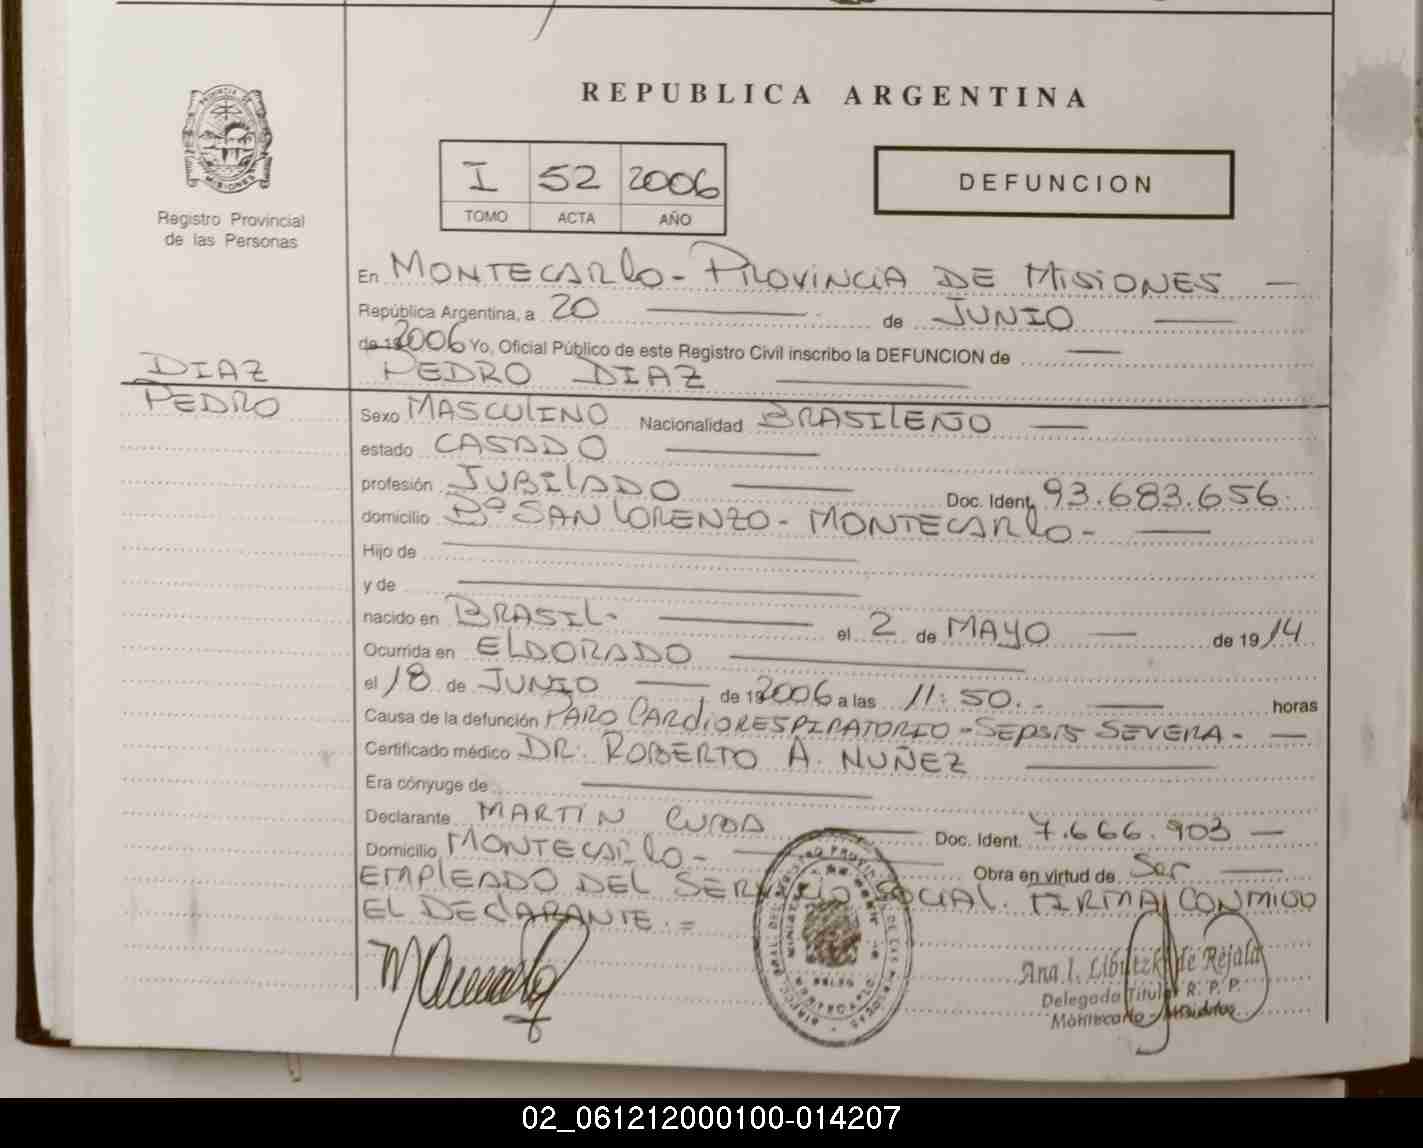 REPUBLICA ARGENTINA
PROVINCIA DE
MISIONES
Registro Provincial
de las Personas
I 52 2006
TOMO ACTA AÑO
DEFUNCION
En MONTECARLO - PROVINCIA DE MISIONES —
República Argentina, a 20 — de JUNIO —
de 19 2006 Yo, Oficial Público de este Registro Civil inscribo la DEFUNCION de —
DIAZ
PEDRO
PEDRO DIAZ —
Sexo MASCULINO Nacionalidad BRASILEÑO —
estado CASADO —
profesión JUBILADO — Doc. Ident. 93.683.656.
domicilio Bº SAN LORENZO - MONTECARLO - —
Hijo de —
y de —
nacido en BRASIL - — el 2 de MAYO — de 19 14
Ocurrida en ELDORADO —
el 18 de JUNIO — de 19 2006 a las 11:50.. — horas
Causa de la defunción PARO CARDIORESPIRATORIO - SEPSIS SEVERA - —
Certificado médico DR. ROBERTO A. NUÑEZ —
Era cónyuge de —
Declarante MARTIN — Doc. Ident. 7.666.903 —
Domicilio MONTECARLO - — Obra en virtud de Ser —
EMPLEADO DEL SERVICIO SOCIAL. FIRMA CONMIGO
EL DECLARANTE. =
Ana I. de Rejala
Delegada Titular R. P. P.
Montecarlo - Misiones
02_061212000100-014207